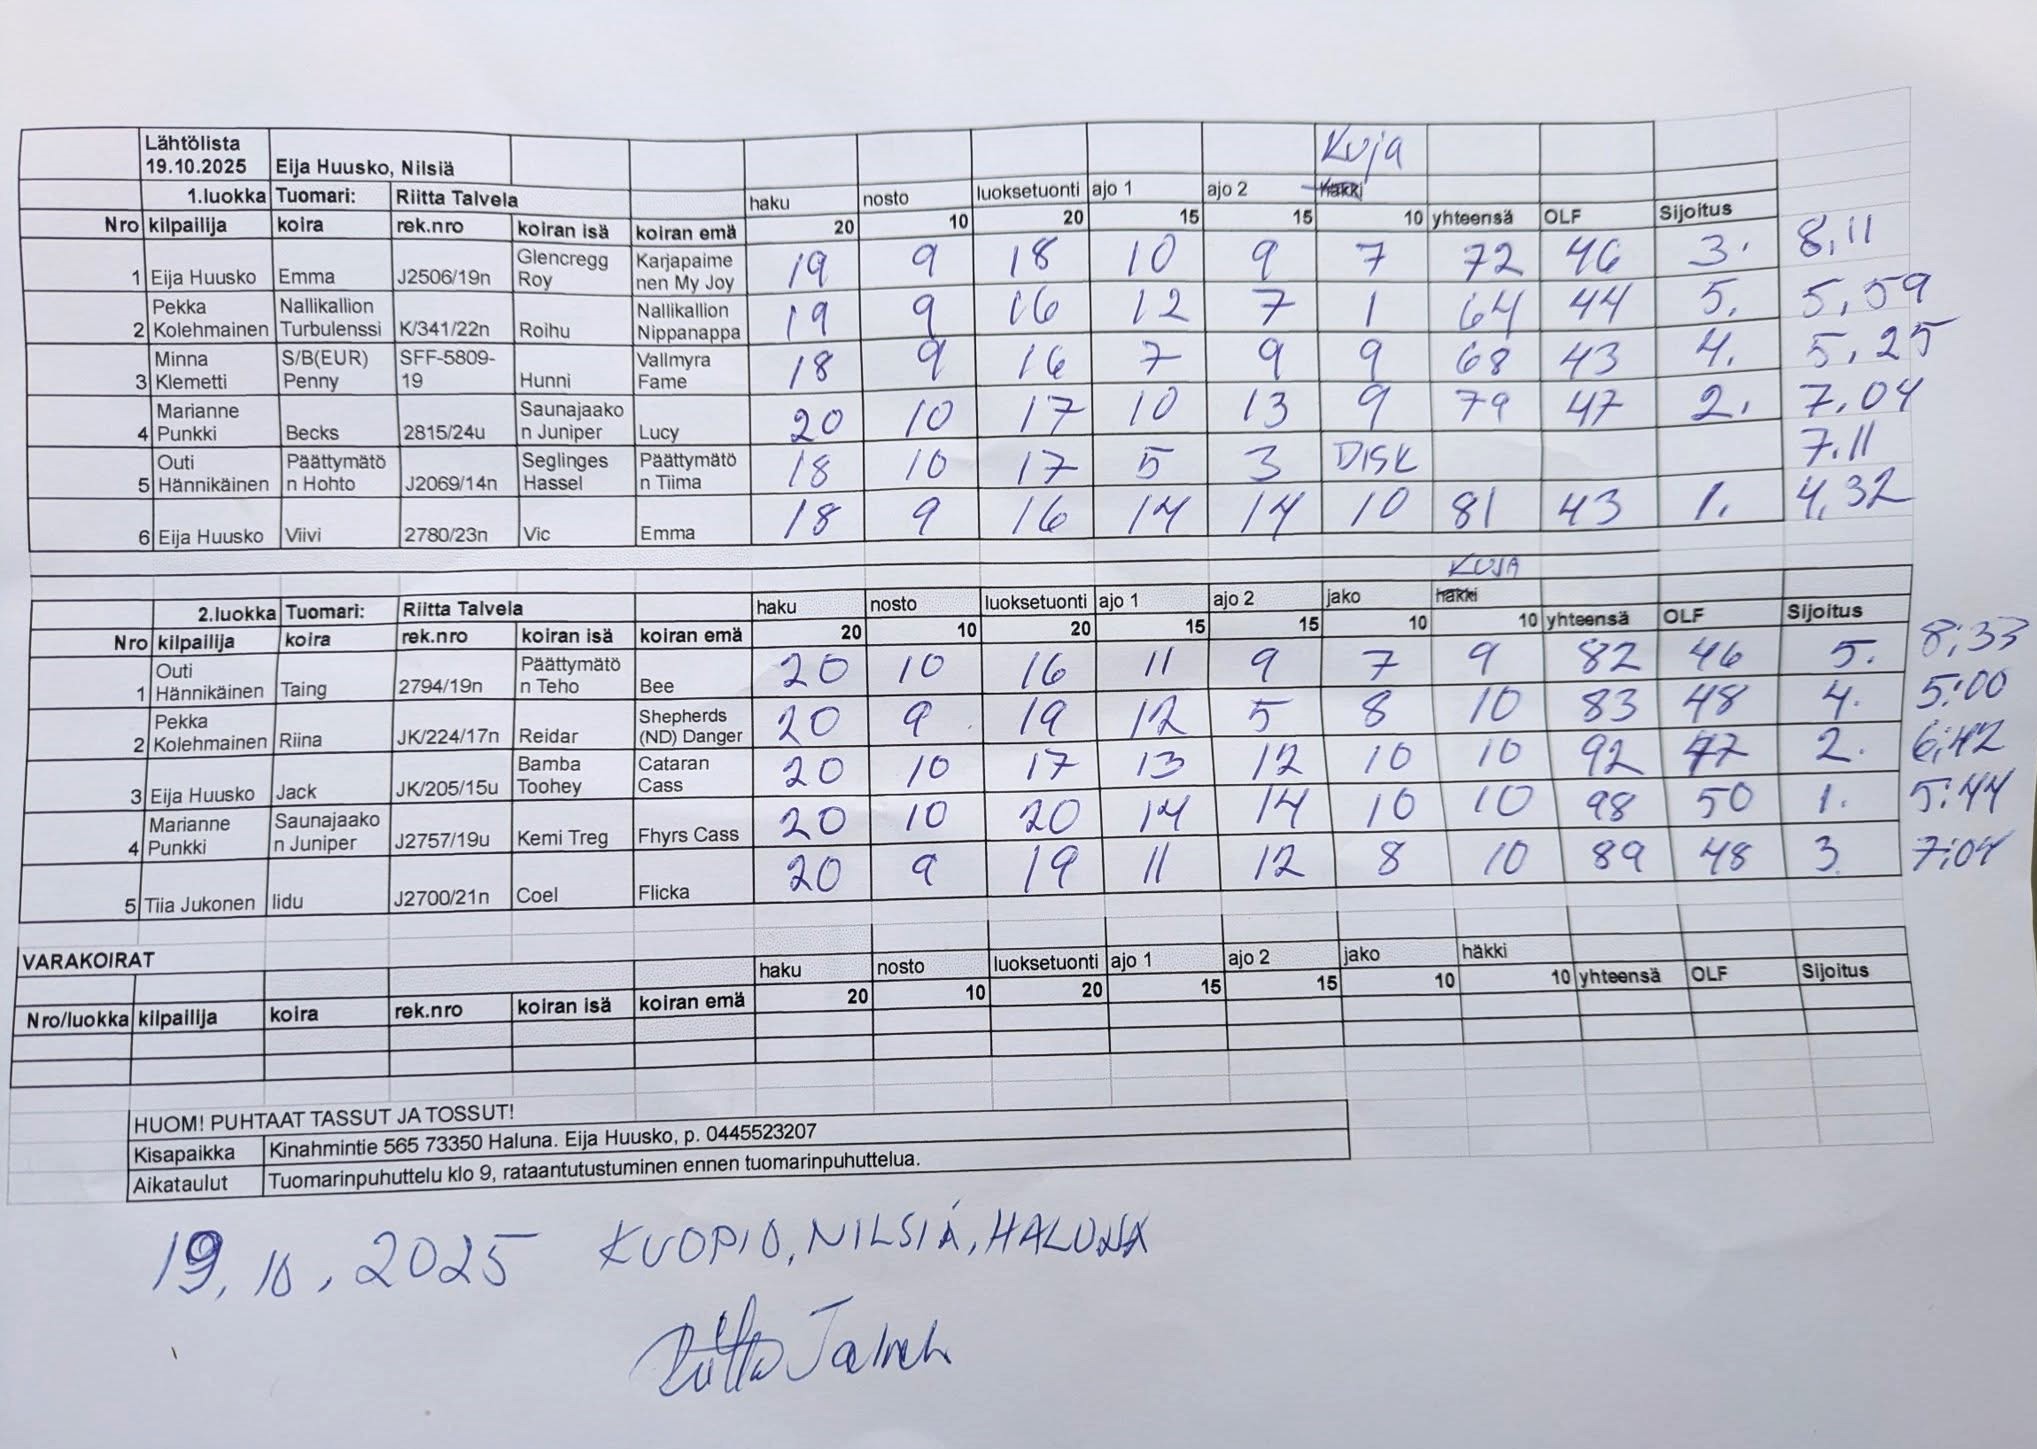 Lähtölista
19.10.2025 Eija Huusko, Nilsiä Kuja
1.luokka Tuomari: Riitta Talvela haku nosto luoksetuonti ajo 1 ajo 2 häkki
Nro kilpailija koira rek.nro koiran isä koiran emä 20 10 20 15 15 10 yhteensä OLF Sijoitus
1 Eija Huusko Emma J2506/19n Glencregg Roy Karjapaimenen My Joy 19 9 18 10 9 7 72 46 3. 8,11
2 Pekka Kolehmainen Nallikallion Turbulenssi K/341/22n Roihu Nallikallion Nippanappa 19 9 16 12 7 1 64 44 5. 5,59
3 Minna Klemetti S/B(EUR) Penny SFF-5809-19 Hunni Vallmyra Fame 18 9 16 7 9 9 68 43 4. 5,25
4 Marianne Punkki Becks 2815/24u Saunajaakon Juniper Lucy 20 10 17 10 13 9 79 47 2. 7,04
5 Outi Hännikäinen Päättymätön Hohto J2069/14n Seglinges Hassel Päättymätön Tiima 18 10 17 5 3 DISK 7.11
6 Eija Huusko Viivi 2780/23n Vic Emma 18 9 16 14 14 10 81 43 1. 4,32
KUJA
2.luokka Tuomari: Riitta Talvela haku nosto luoksetuonti ajo 1 ajo 2 jako häkki
Nro kilpailija koira rek.nro koiran isä koiran emä 20 10 20 15 15 10 10 yhteensä OLF Sijoitus
1 Outi Hännikäinen Taing 2794/19n Päättymätön Teho Bee 20 10 16 11 9 7 9 82 46 5. 8:33
2 Pekka Kolehmainen Riina JK/224/17n Reidar Shepherds (ND) Danger 20 9 19 12 5 8 10 83 48 4. 5:00
3 Eija Huusko Jack JK/205/15u Bamba Toohey Cataran Cass 20 10 17 13 12 10 10 92 47 2. 6:42
4 Marianne Punkki Saunajaakon Juniper J2757/19u Kemi Treg Fhyrs Cass 20 10 20 14 14 10 10 98 50 1. 5:44
5 Tiia Jukonen Iidu J2700/21n Coel Flicka 20 9 19 11 12 8 10 89 48 3. 7:04
VARAKOIRAT haku nosto luoksetuonti ajo 1 ajo 2 jako häkki
Nro/luokka kilpailija koira rek.nro koiran isä koiran emä 20 10 20 15 15 10 10 yhteensä OLF Sijoitus
HUOM! PUHTAAT TASSUT JA TOSSUT!
Kisapaikka Kinahmintie 565 73350 Haluna. Eija Huusko, p. 0445523207
Aikataulut Tuomarinpuhuttelu klo 9, rataantutustuminen ennen tuomarinpuhuttelua.
19.10.2025 KUOPIO, NILSIÄ, HALUNA
Riitta Talvela